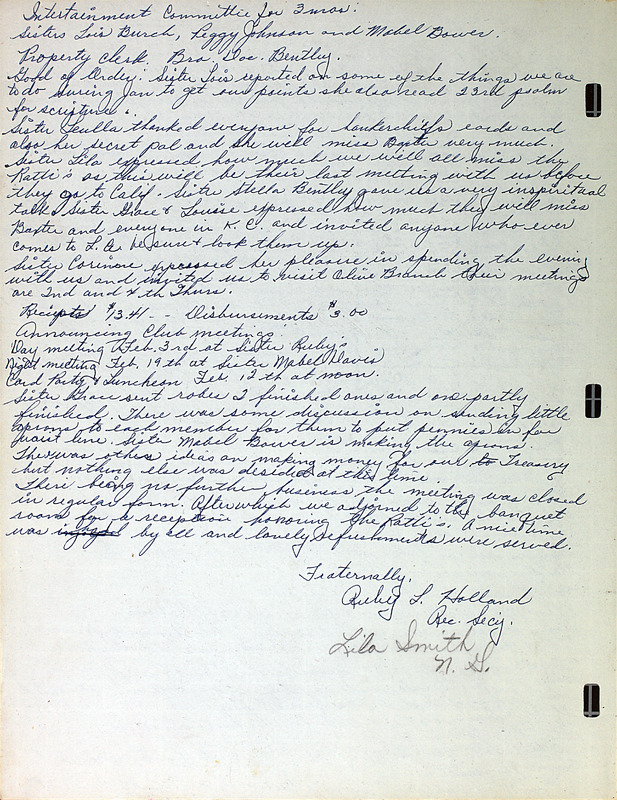 Intertainment Committie for 3 mos:
Sisters Lois Burch, Peggy Johnson and Mabel Bower.
Property Clerk. Bro Doc. Bentley.
Good of Order: Sister Lois reported on some of the things we are
to do during Jan to get our points she also read 23rd psalm
for scripture.
Sister Leulla thanked everyone for hankerchiefs cards and
also her secret pal and she will miss Baxter very much.
Sister Lila expressed how much we will all miss the
Ratti's as this will be their last meeting with us before
they go to Calif. Sister Stella Bentley gave us a very inspiritual
talk. Sister Grace & Louise expressed how much they will miss
Baxter and everyone in K.C. and invited anyone who ever
comes to L.A. be sure & look them up.
Sister Corinne expressed her pleasure in spending the evening
with us and invited us to visit Olive Branch their meetings
are 2nd and 4th Thurs.
Reciepts $13.41 - - Disbursements $3.00
Announcing Club meetings:
Day meeting Feb. 3rd at Sister Ruby's
Night meeting Feb. 19th at Sister Mabel Davis
Card Party & Luncheon Feb. 12th at noon.
Sister Grace sent robes 2 finished ones and one partly
finished. There was some discussion on sending little
aprons to each member for them to put pennies in for
waist line. Sister Mabel Bower is making the aprons.
There was other ideas on making money for our to Treasury
but nothing else was desided at this time.
There being no further business the meeting was closed
in regular form. After which we adjorned to the banquet
room for a reception honoring the Ratti's. A nice time
was by all and lovely refreshments were served.
Fraternally,
Ruby L. Holland
Rec. Secy.
Lila Smith
N. G.